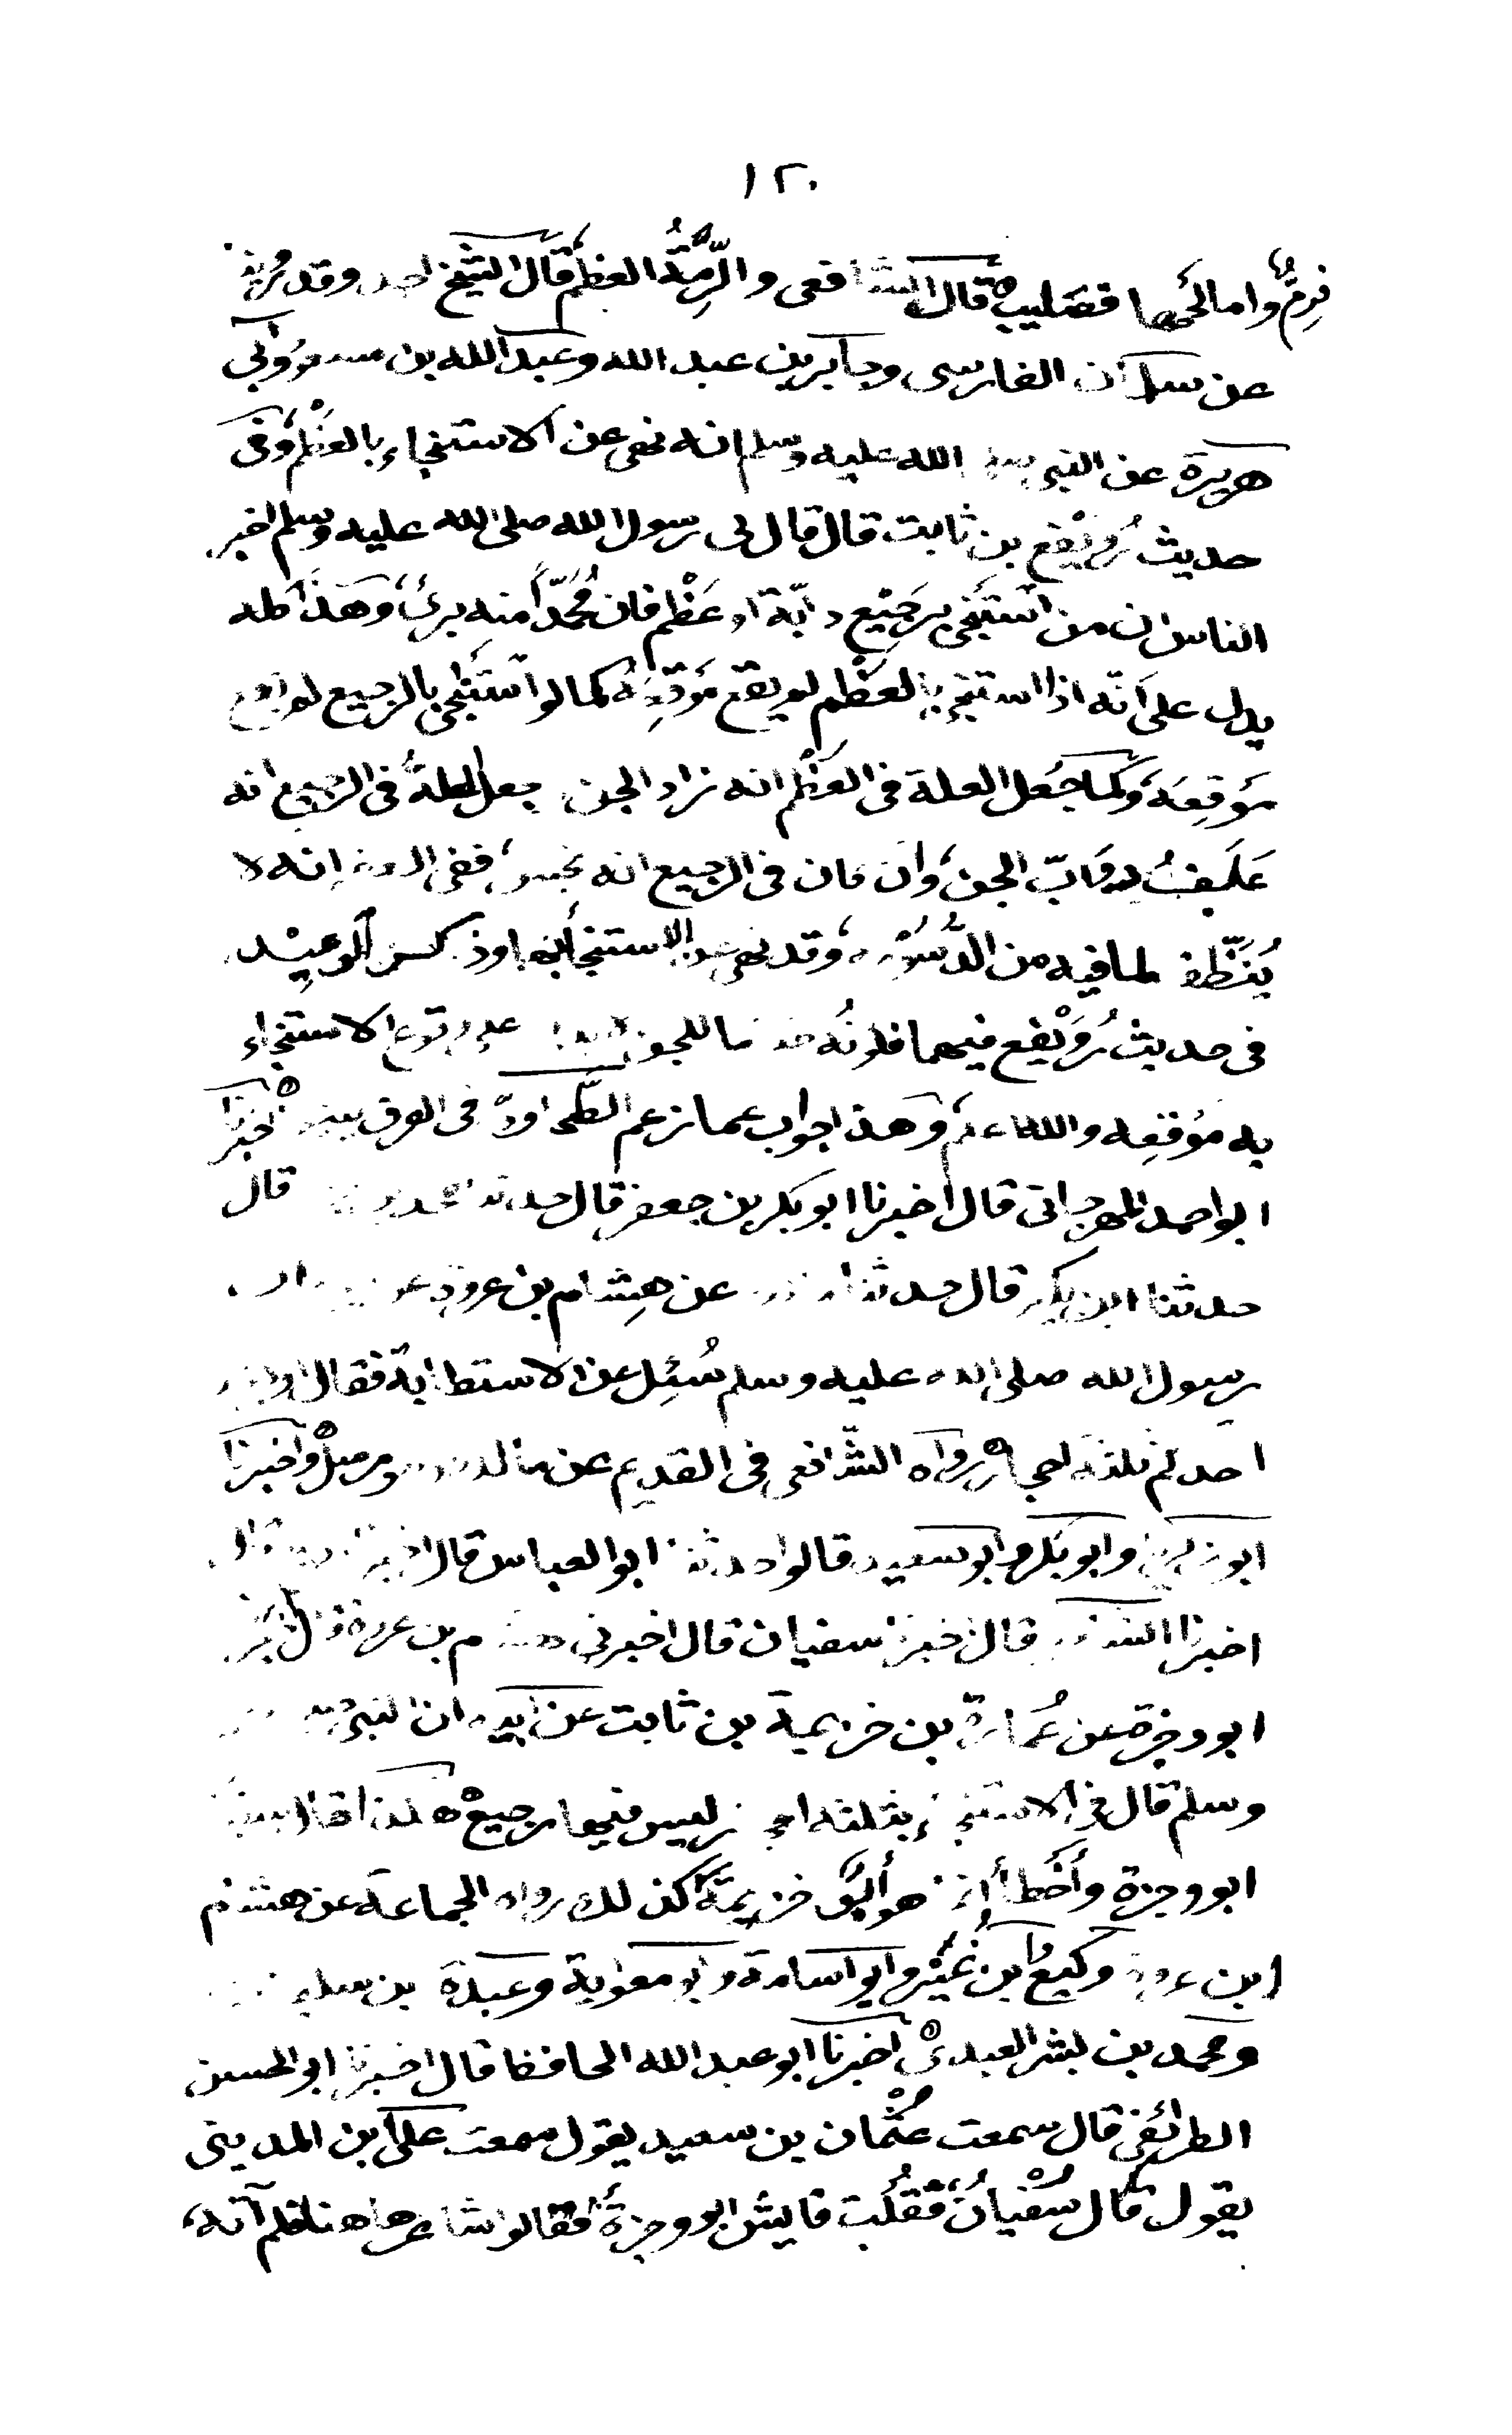 ١٢٠
فرم واما لحمها فصليب قال الشافعى والرِّمَّةُ العظم قال الشيخ احمد وقد روينا
عن سلمان الفارسى وجابر بن عبد الله وعبد الله بن مسعود وابى
هريرة عن النبى صلى الله عليه وسلم انه نهى عن الاستنجاء بالعظم وفى
حديث رُوَيْفع بن ثابت قال قال لى رسول الله صلى الله عليه وسلم اخبر
الناس ان من استنجى برجيع دابّة او عَظْم فان مُحَمَّدًا منه برئ وهذا كله
يدل على انّه اذا استنجى بالعظم لم يقع مَوْقِعَه كما لو استنجى بالرجيع لم يقع
مَوقِعَه وكما جَعَل العلة فى العظم انه زاد الجن جعل العلة فى الرجيع انه
عَلَف دوَابّ الجن وان كان فى الرجيع انه نجس ففى العظم انه لا
يُنَظِّف لما فيه من الدُّسُومة وقد نهى عن الاستنجاء بهما وذكر الوعيد
فى حديث رُوَيْفع فيهما
به مَوْقعه والله اعلم وهذا جواب عما زعم الطحاوىّ فى الفرق بينهما اخبرنا
ابو احمد المهرجانى قال اخبرنا ابو بكر بن جعفر قال حدثنا محمد قال
حدثنا ابن بكير قال حدثنا عن هِشام بن عروة عن
رسول الله صلى الله عليه وسلم سُئِل عن الاستطابة فقال اولا يجد
احدكم ثلثة احجار رواه الشّافعى فى القديم عن مالك وهو مرسل واخبرنا
ابو زكريا وابو بكر وابو سعيد قالوا حدثنا ابو العباس قال اخبرنا قال
اخبرنا الشافعى قال اخبرنا سفيان قال اخبرنى هشام بن عروة قال اخبرنى
ابو وجزة عن عُمارة بن خزيمة بن ثابت عن ابيه ان النبى صلى
وسلم قال فى الاستنجاء بثلثة احجار ليس فيها رجيع هكذا قال سفيان
ابو وجزة وأَخطأ انما هو ابو خزيمة كذلك رواه الجماعة عن هشام
ابن عروة وكيع وابن نُمَيْر وابو اسامة وابو معوية وعبدة بن سليمان
ومحمد بن بشر العبدى اخبرنا ابو عبد الله الحافظ قال اخبرنا ابو الحسن
الطرائفى قال سمعت عُثْمان بن سعيد يقول سمعت على ابن المدينى
يقول قال سُفْيانُ فَقُلت فايش ابو وجزة فقالوا شاعر هاهنا فلم آته